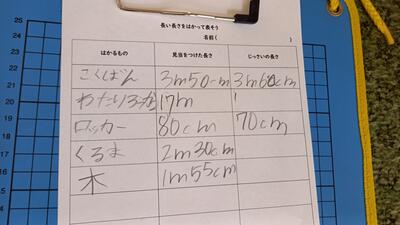 長い長さをはかって表そう
名前( )
はかるもの 見当をつけた長さ じっさいの長さ
こくばん 3m50cm 3m60cm
わたりろうか 17m
ロッカー 80cm 70cm
くるま 2m30cm
木 1m55cm
21
20
19
18
17
16
15